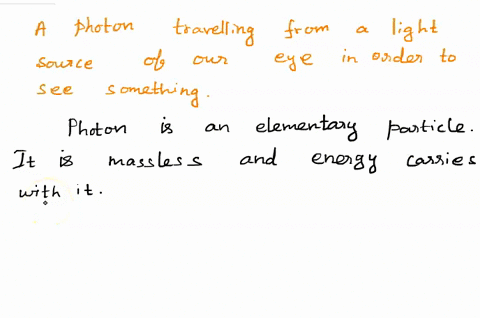 A photon travelling from a light
source of our eye in order to
see something.
Photon is an elementary particle.
It is massless and energy carries
with it.